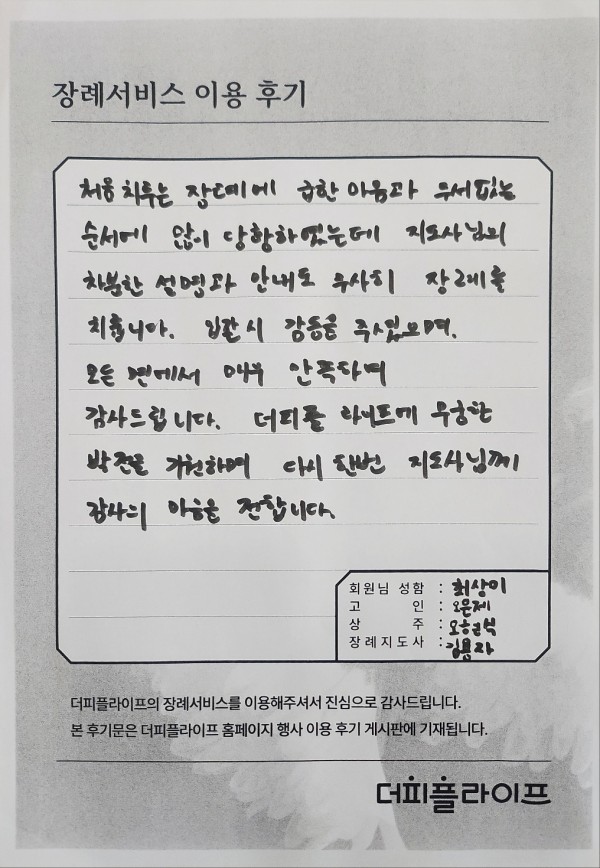 장례서비스 이용 후기
처음 치루는 장례에 급한 마음과 두서없는
순서에 많이 당황하였는데 지도사님의
차분한 설명과 안내로 무사히 장례를
치릅니다. 입관시 감동을 주셨으며.
모든 면에서 매우 만족하며
감사드립니다. 더피플 라이프에 무궁한
발전을 기원하며 다시 한번 지도사님께
감사의 마음을 전합니다.
회원님 성함 : 최상미
고 인 : 오윤제
상 주 :
장례지도사 : 김용자
더피플라이프의 장례서비스를 이용해주셔서 진심으로 감사드립니다.
본 후기문은 더피플라이프 홈페이지 행사 이용 후기 게시판에 기재됩니다.
더피플라이프